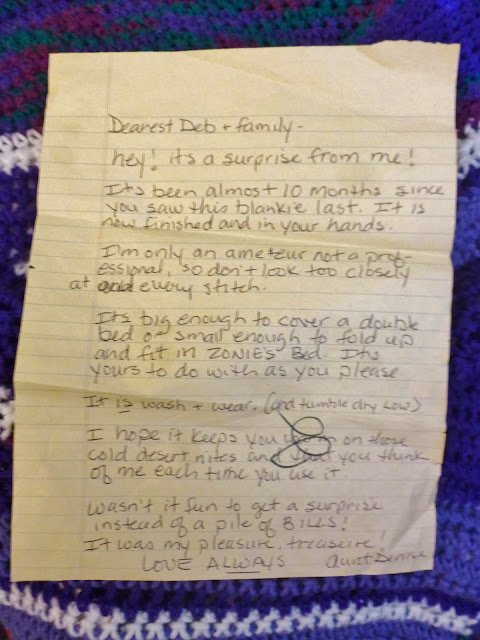 Dearest Deb + family -
hey! its a surprise from me!
Its been almost 10 months since
you saw this blankie last. It is
now finished and in your hands.
I'm only an ameteur not a prof-
essional, so don't look too closely
at every stitch.
Its big enough to cover a double
bed or small enough to fold up
and fit in ZONIE'S Bed. Its
yours to do with as you please
It is wash + wear, (and tumble dry low)
I hope it keeps you warm on those
cold desert nites and that you think
of me each time you use it.
wasn't it fun to get a surprise
instead of a pile of BILLS!
It was my pleasure, treasure!
LOVE ALWAYS Aunt Denise